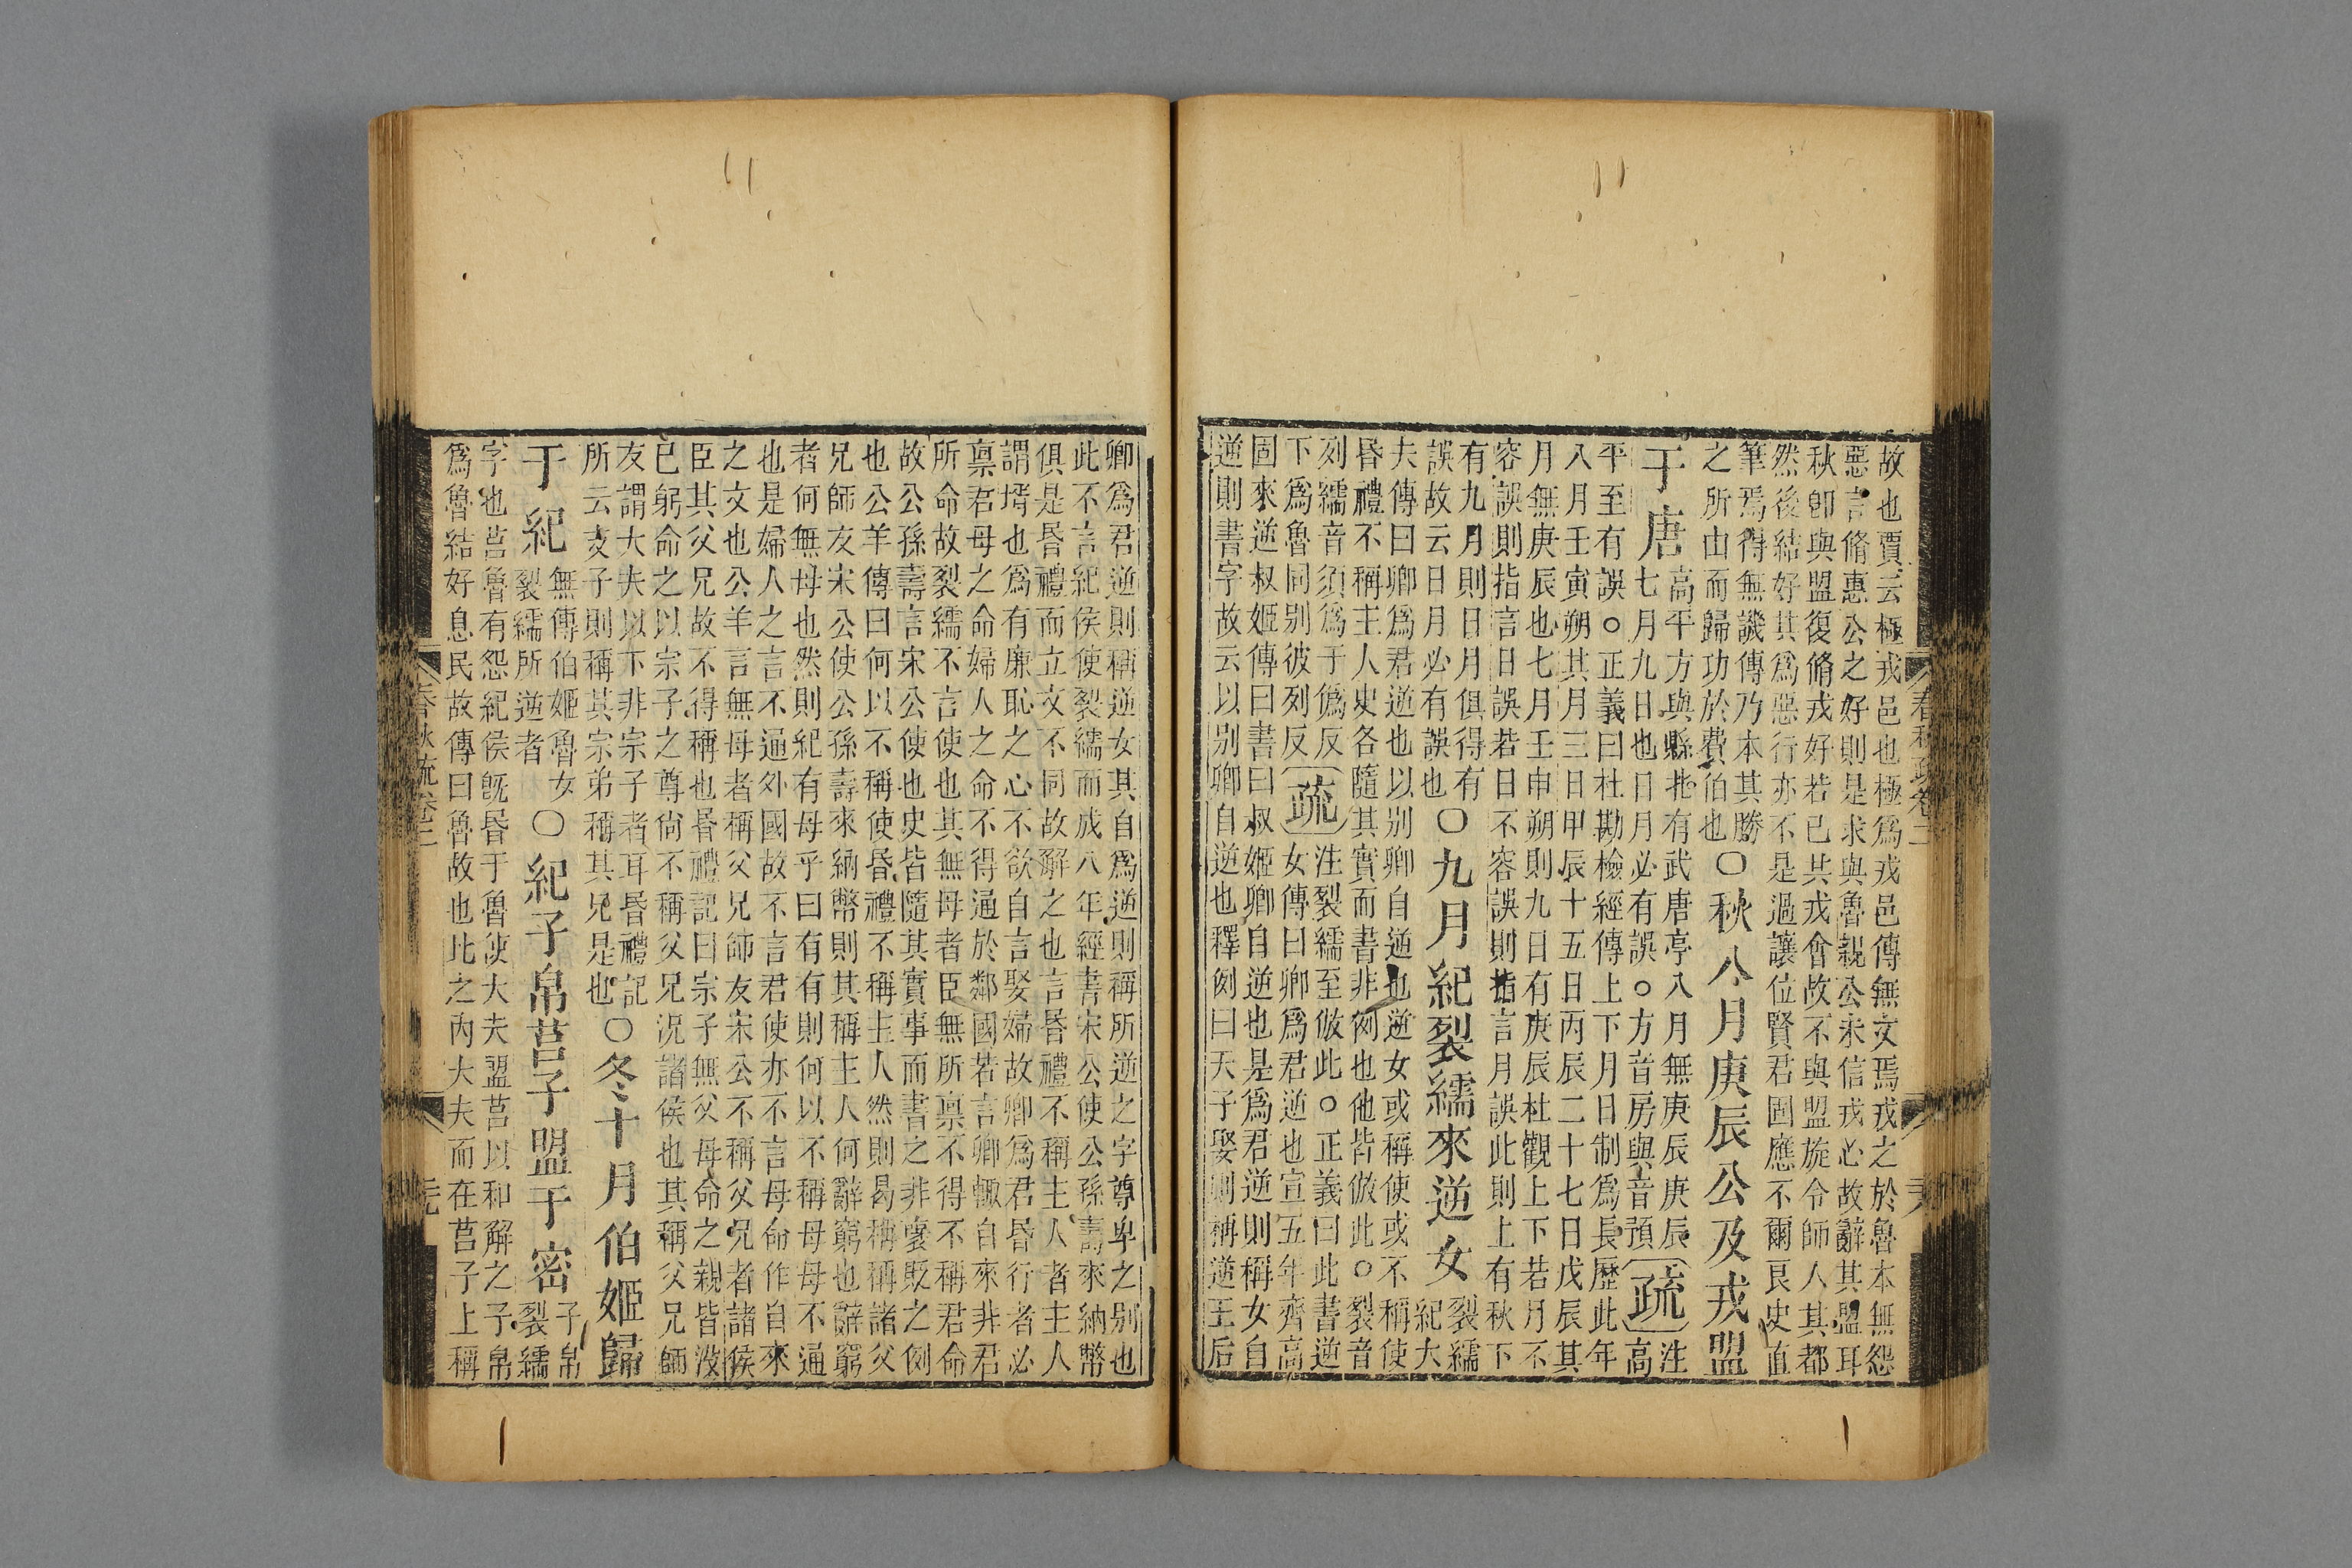 故也賈云極戎邑也極爲戎邑傳無文焉戎之於魯本無怨
惡言脩惠公之好則是求與魯親公未信戎心故辭其盟耳
秋卽與盟復脩戎好若已共戎會故不與盟旋令師人其都
然後結好其爲惡行亦不是過讓位賢君固應不爾良史直
筆焉得無譏傳乃本其勝
之所由而歸功於費伯也
〇秋八月庚辰公及戎盟
于唐
高平方與縣北有武唐亭八月無庚辰庚辰
七月九日也日月必有誤〇方音房與音預
疏
注
高
平至有誤〇正義曰杜勘檢經傳上下月日制爲長歷此年
八月壬寅朔其月三日甲辰十五日丙辰二十七日戊辰其
月無庚辰也七月壬申朔則九日有庚辰杜觀上下若月不
容誤則指言日誤若日不容誤則指言月誤此則上有秋下
有九月則日月俱得有
誤故云日月必有誤也
〇九月紀裂繻來逆女
裂繻
紀大
夫傳曰卿爲君逆也以别卿自逆也逆女或稱使或不稱使
昏禮不稱主人史各隨其實而書非例也他皆倣此〇裂音
列繻音須爲于僞反
下爲魯同别彼列反
疏
注裂繻至倣此〇正義曰此書逆
女傳曰卿爲君逆也宣五年齊高
固來逆叔姬傳曰書曰叔姬卿自逆也是爲君逆則稱女自
逆則書字故云以别卿自逆也釋例曰天子娶則稱逆王后
卿爲君逆則稱逆女其自爲逆則稱所逆之字尊卑之别也
此不言紀侯使裂繻而成八年經書宋公使公孫壽來納幣
俱是昏禮而立文不同故解之也言昏禮不稱主人者主人
謂壻也爲有廉恥之心不欲自言娶婦故卿爲君昏行者必
稟君母之命婦人之命不得通於鄰國若言卿輒自來非君
所命故裂繻不言使也其無母者臣無所稟不得不稱君命
故公孫壽言宋公使也史皆隨其實事而書之非襃貶之例
也公羊傳曰何以不稱使昏禮不稱主人然則曷稱稱諸父
兄師友宋公使公孫壽來納幣則其稱主人何辭窮也辭窮
者何無母也然則紀有母乎曰有有則何以不稱母母不通
也是婦人之言不通外國故不言君使亦不言母命作自來
之文也公羊言無母者稱父兄師友宋公不稱父兄者諸侯
臣其父兄故不得稱也昏禮記曰宗子無父母命之親皆沒
已躬命之以宗子之尊尙不稱父兄况諸侯也其稱父兄師
友謂大夫以下非宗子者耳昏禮記
所云支子則稱其宗弟稱其兄是也
〇冬十月伯姬歸
于紀
無傳伯姬魯女
裂繻所逆者
〇紀子帛莒子盟于密
子帛
裂繻
字也莒魯有怨紀侯旣昏于魯使大夫盟莒以和解之子帛
爲魯結好息民故傳曰魯故也比之內大夫而在莒子上稱